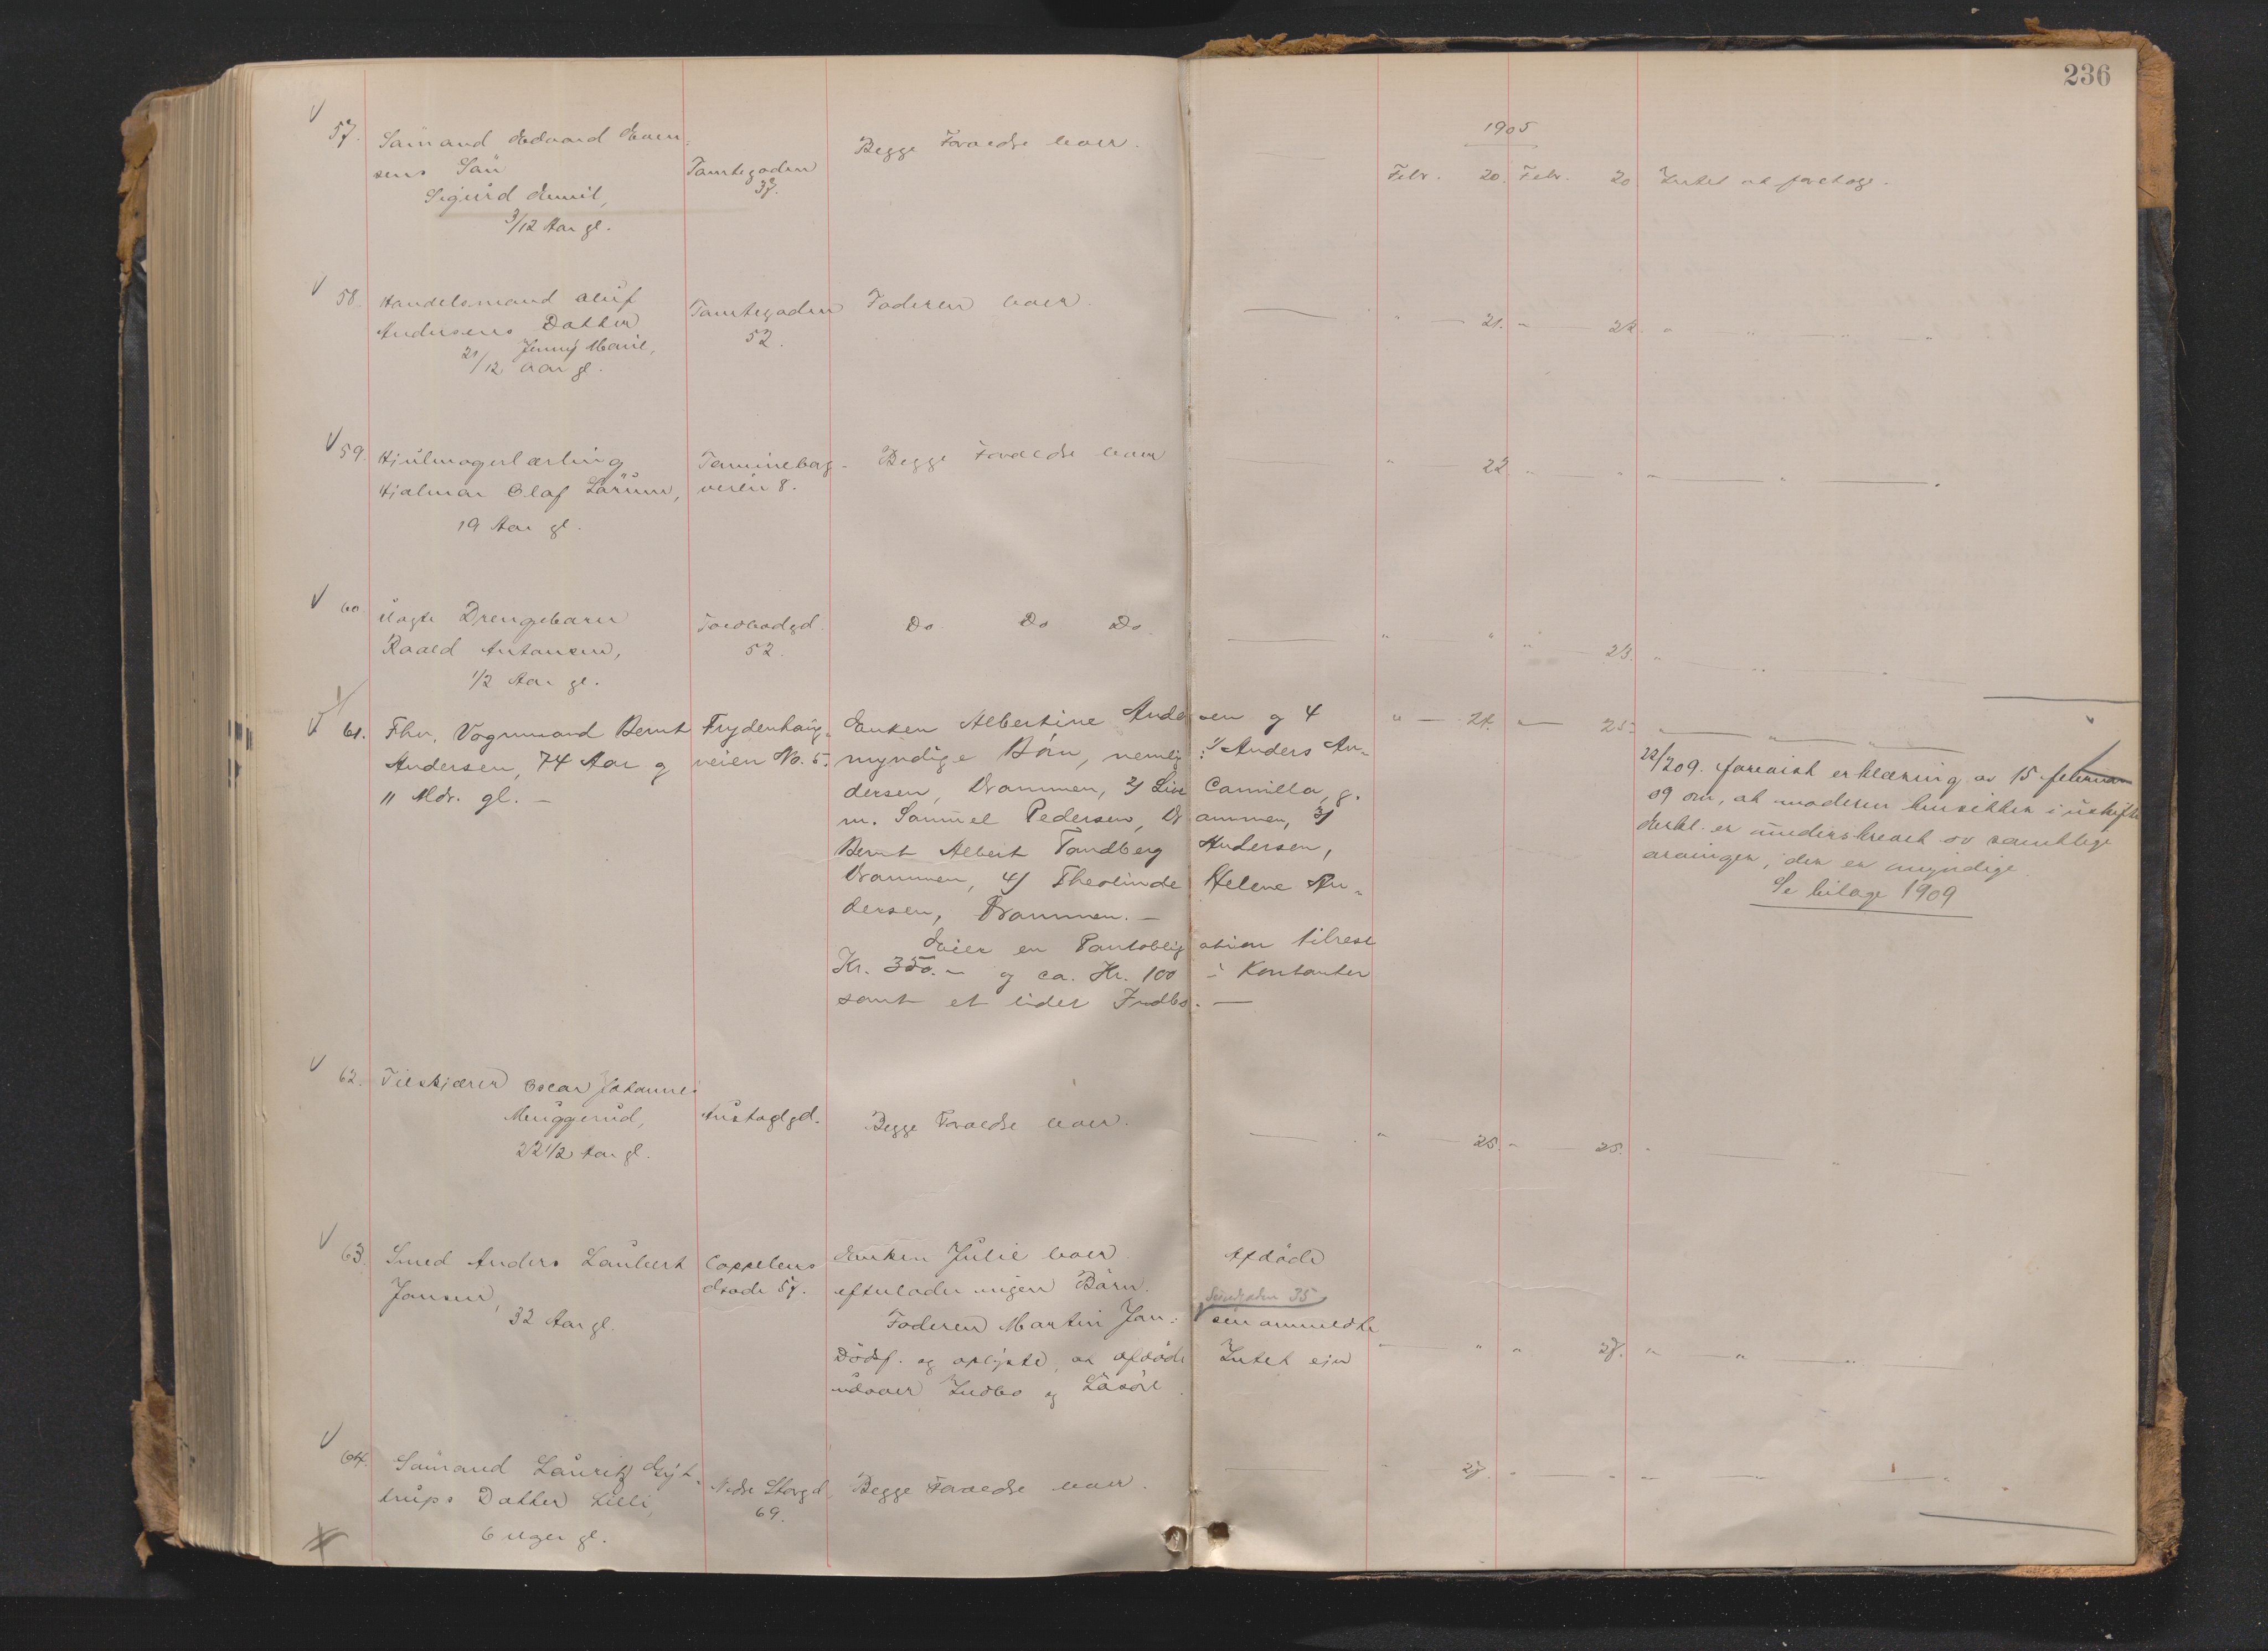 236
1905
57. Sömand Edvard Evens
sens Sön
Sigurd Emil,
3/12 Aar gl.
Tomtegaden
37.
Begge Forældre lever.
Febr. 20. Febr. 20 Intet at foretage.
58. Handelsmand Oluf
Andersens Datter
Jenny Marie,
21/12 Aar gl.
Tomtegaden
52.
Faderen lever.
" 21. " 22. " " " "
59. Hjulmagerlærling
Hjalmar Olaf Larum,
19 Aar gl.
veien 8.
Begge Forældre lever
" 22. " " " " "
60 uægte Drengebarn
Roald Antonsen,
1/2 Aar gl.
52.
Do Do Do.
" " " 23. " " "
61. Fhv. Vognmand Bernt
Andersen, 74 Aar og
11 Mdr. gl. —
Frydenhaug-
veien No. 5.
Enken Albertine Andersen og 4
myndige Börn, nemlig: 1/ Anders An-
dersen, Drammen, 2/ Live Camilla, g.
m. Samuel Pedersen, Drammen, 3/
Bernt Albert Tandberg Andersen,
Drammen, 4/ Theolinde Helene An-
dersen, Drammen. —
Eier en Pantobligation tilrest
Kr. 350.- og ca. Kr. 100 i Kontanter
samt et lidet Indbo. —
" 24. " 25. " "
22/2 09. forevist erklæring av 15 februar
09 om, at moderen hensitter i uskifte
Erkl. er underskrevet av samtlige
arvinger, der er myndige.
Se bilage 1909
62. Filskjærer Oscar Johannes
Muggerud,
22 1/2 Aar gl.
Austadgd.
Begge Forældre lever.
" 25. " 25. " "
63. Smed Anders Laubert
Jansen,
32 Aar gl.
Cappelens
Enken Julie lever. Afdöde
efterlader ingen Börn.
35
Faderen Martin Jansen anmeldte
Dödsf. og oplyste, at afdöde Intet eier
udover Indbo og Lösöre.
" " 27. " " "
64. Sömand Lauritz
trups Datter Lilli,
6 uger gl.
Nedre Storgd.
69.
Begge Forældre lever.
" 27. " " " " "